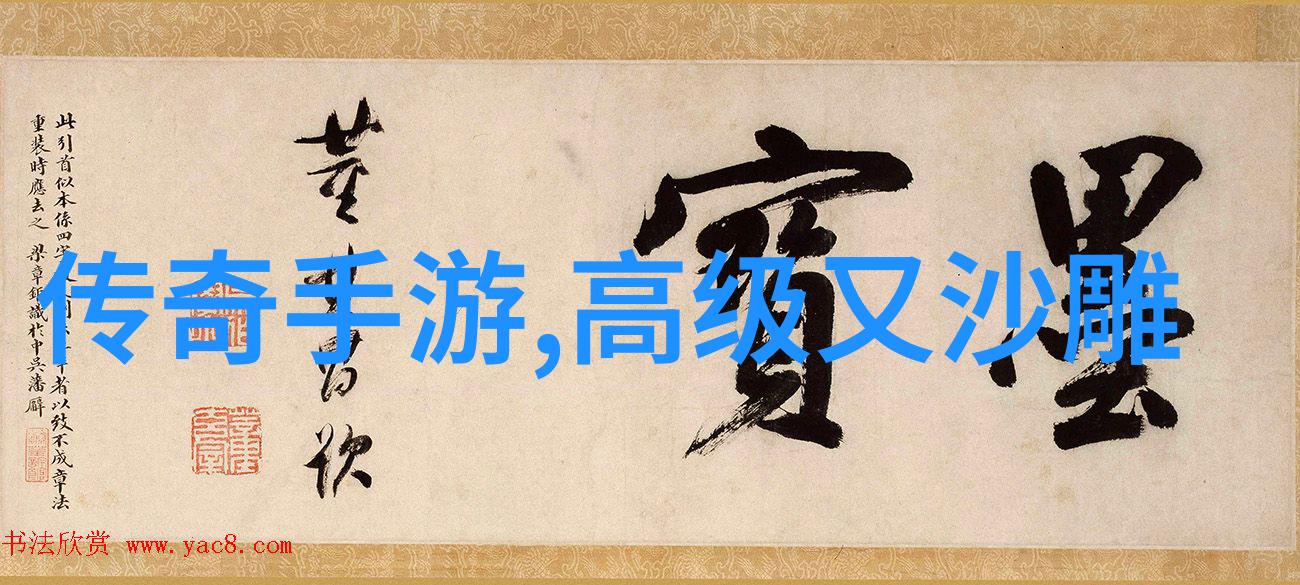 墨寶
董其昌題
此引首似本係四字
者以致不成章法
重裝時應去之 梁章鉅識於中吳藩廨
传奇手游,高级又沙雕
书法欣赏 www.yac8.com